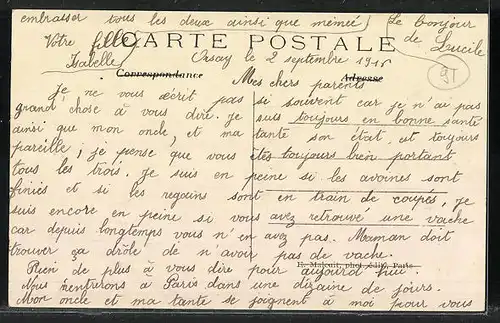 embrasser tous les deux ainsi que mémée
Le bonjour
de
Lucile
Votre fille
Isabelle
CARTE POSTALE
Orsay le 2 septembre 1915
91
Correspondance
Adresse
Mes chers parents
Je ne vous écrit pas si souvent car je n'ai pas
grand chose à vous dire. je suis toujours en bonne santé
ainsi que mon oncle, et ma tante son état est toujours
pareille; je pense que vous êtes toujours bien portant
tous les trois. Je suis en peine si les avoines sont
finies et si les regains sont en train de coupés, je
suis encore en peine si vous avez retrouvé une vache
car depuis longtemps vous n'en avez pas. Maman doit
trouver ça drôle de n'avoir pas de vache.
Rien de plus à vous dire pour aujourd'hui.
E. Malcuit, phot.-édit., Paris
Nous rentrerons à Paris dans une dizaine de jours.
Mon oncle et ma tante se joignent à moi pour vous